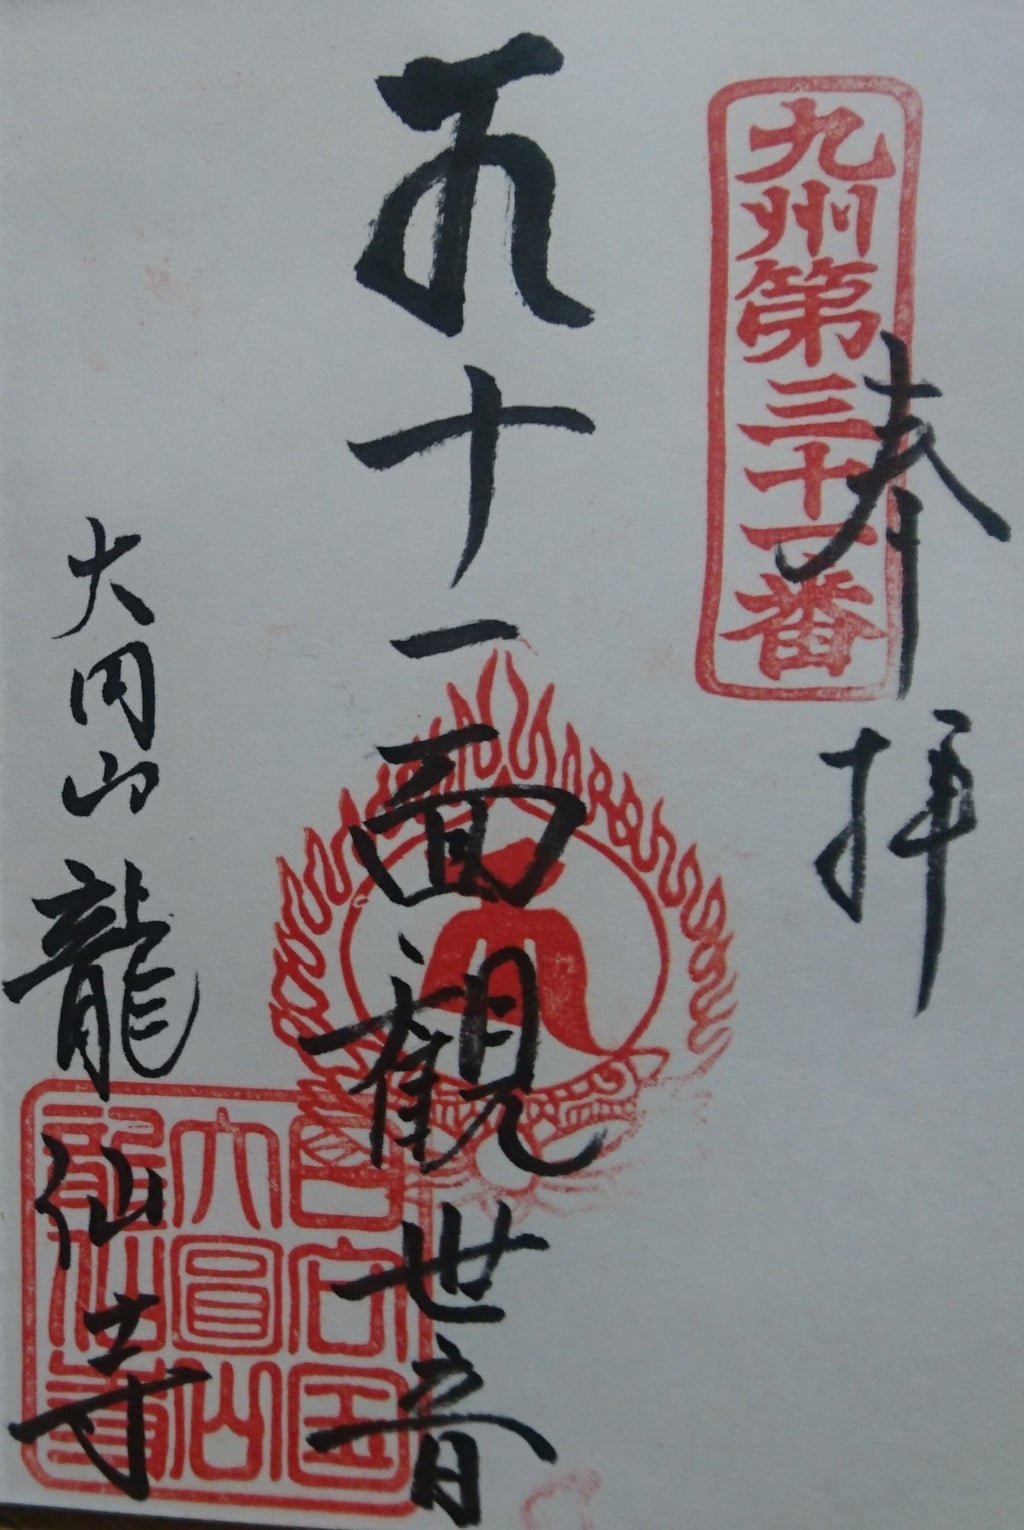 九州第三十一番
奉拝
十一面観世音
大円山龍仙寺
日向国
大圓山
龍仙寺